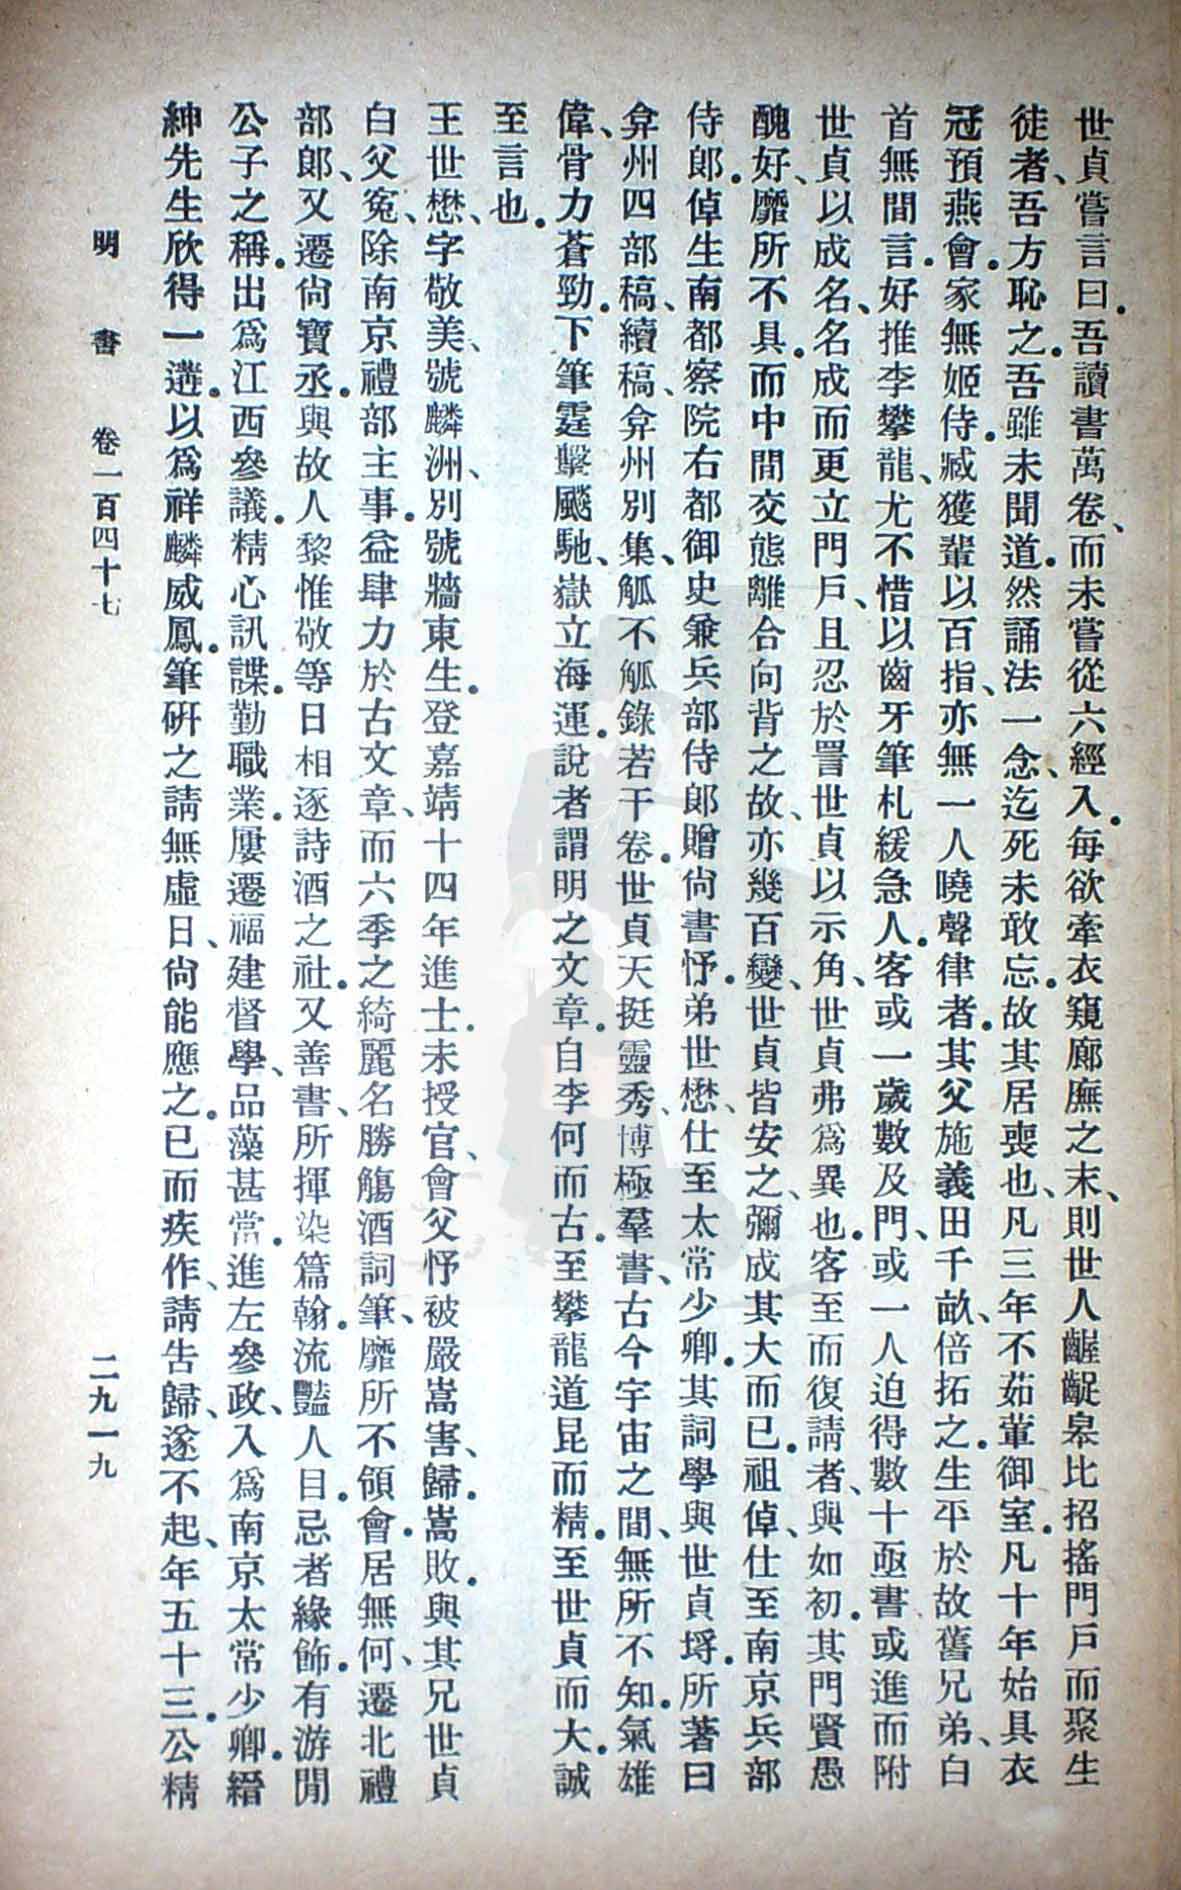 世貞嘗言曰。吾讀書萬卷、而未嘗從六經入。每欲牽衣窺廊廡之末、則世人齷齪皋比招搖門戶而聚生
徒者、吾方恥之。吾雖未聞道。然誦法一念、迄死未敢忘。故其居喪也、凡三年不茹葷御室。凡十年始具衣
冠預燕會。家無姬侍。臧獲輩以百指、亦無一人曉聲律者。其父施義田千畝、倍拓之。生平於故舊兄弟、白
首無間言。好推李攀龍、尤不惜以齒牙筆札緩急人。客或一歲數及門、或一人迫得數十函書或進而附
世貞以成名、名成而更立門戶、且忍於詈世貞以示角、世貞弗爲異也。客至而復請者、與如初。其門賢愚
醜好、靡所不具。而中間交態離合向背之故、亦幾百變、世貞皆安之、彌成其大而已。祖倬、仕至南京兵部
侍郎。倬生南都察院右都御史兼兵部侍郎贈尙書忬。弟世懋、仕至太常少卿。其詞學與世貞埒。所著曰
弇州四部稿、續稿、弇州別集、觚不觚錄若干卷。世貞天挺靈秀、博極羣書、古今宇宙之間、無所不知。氣雄
偉、骨力蒼勁。下筆霆擊颷馳、嶽立海運。說者謂明之文章。自李何而古。至攀龍道昆而精。至世貞而大。誠
至言也。
王世懋、字敬美、號麟洲、別號牆東生。登嘉靖十四年進士。未授官、會父忬被嚴嵩害、歸。嵩敗。與其兄世貞
白父冤、除南京禮部主事。益肆力於古文章、而六季之綺麗名勝觴酒詞筆、靡所不領會。居無何、遷北禮
部郎、又遷尙寶丞。與故人黎惟敬等日相逐詩酒之社。又善書、所揮染篇翰。流豔人目。忌者緣飾。有游閒
公子之稱。出爲江西參議。精心訊諜。勤職業。屢遷福建督學、品藻甚當。進左參政、入爲南京太常少卿。縉
紳先生欣得一遘。以爲祥麟威鳳。筆硏之請無虛日、尙能應之。已而疾作、請告歸、遂不起、年五十三。公精
明書 卷一百四十七 二九一九